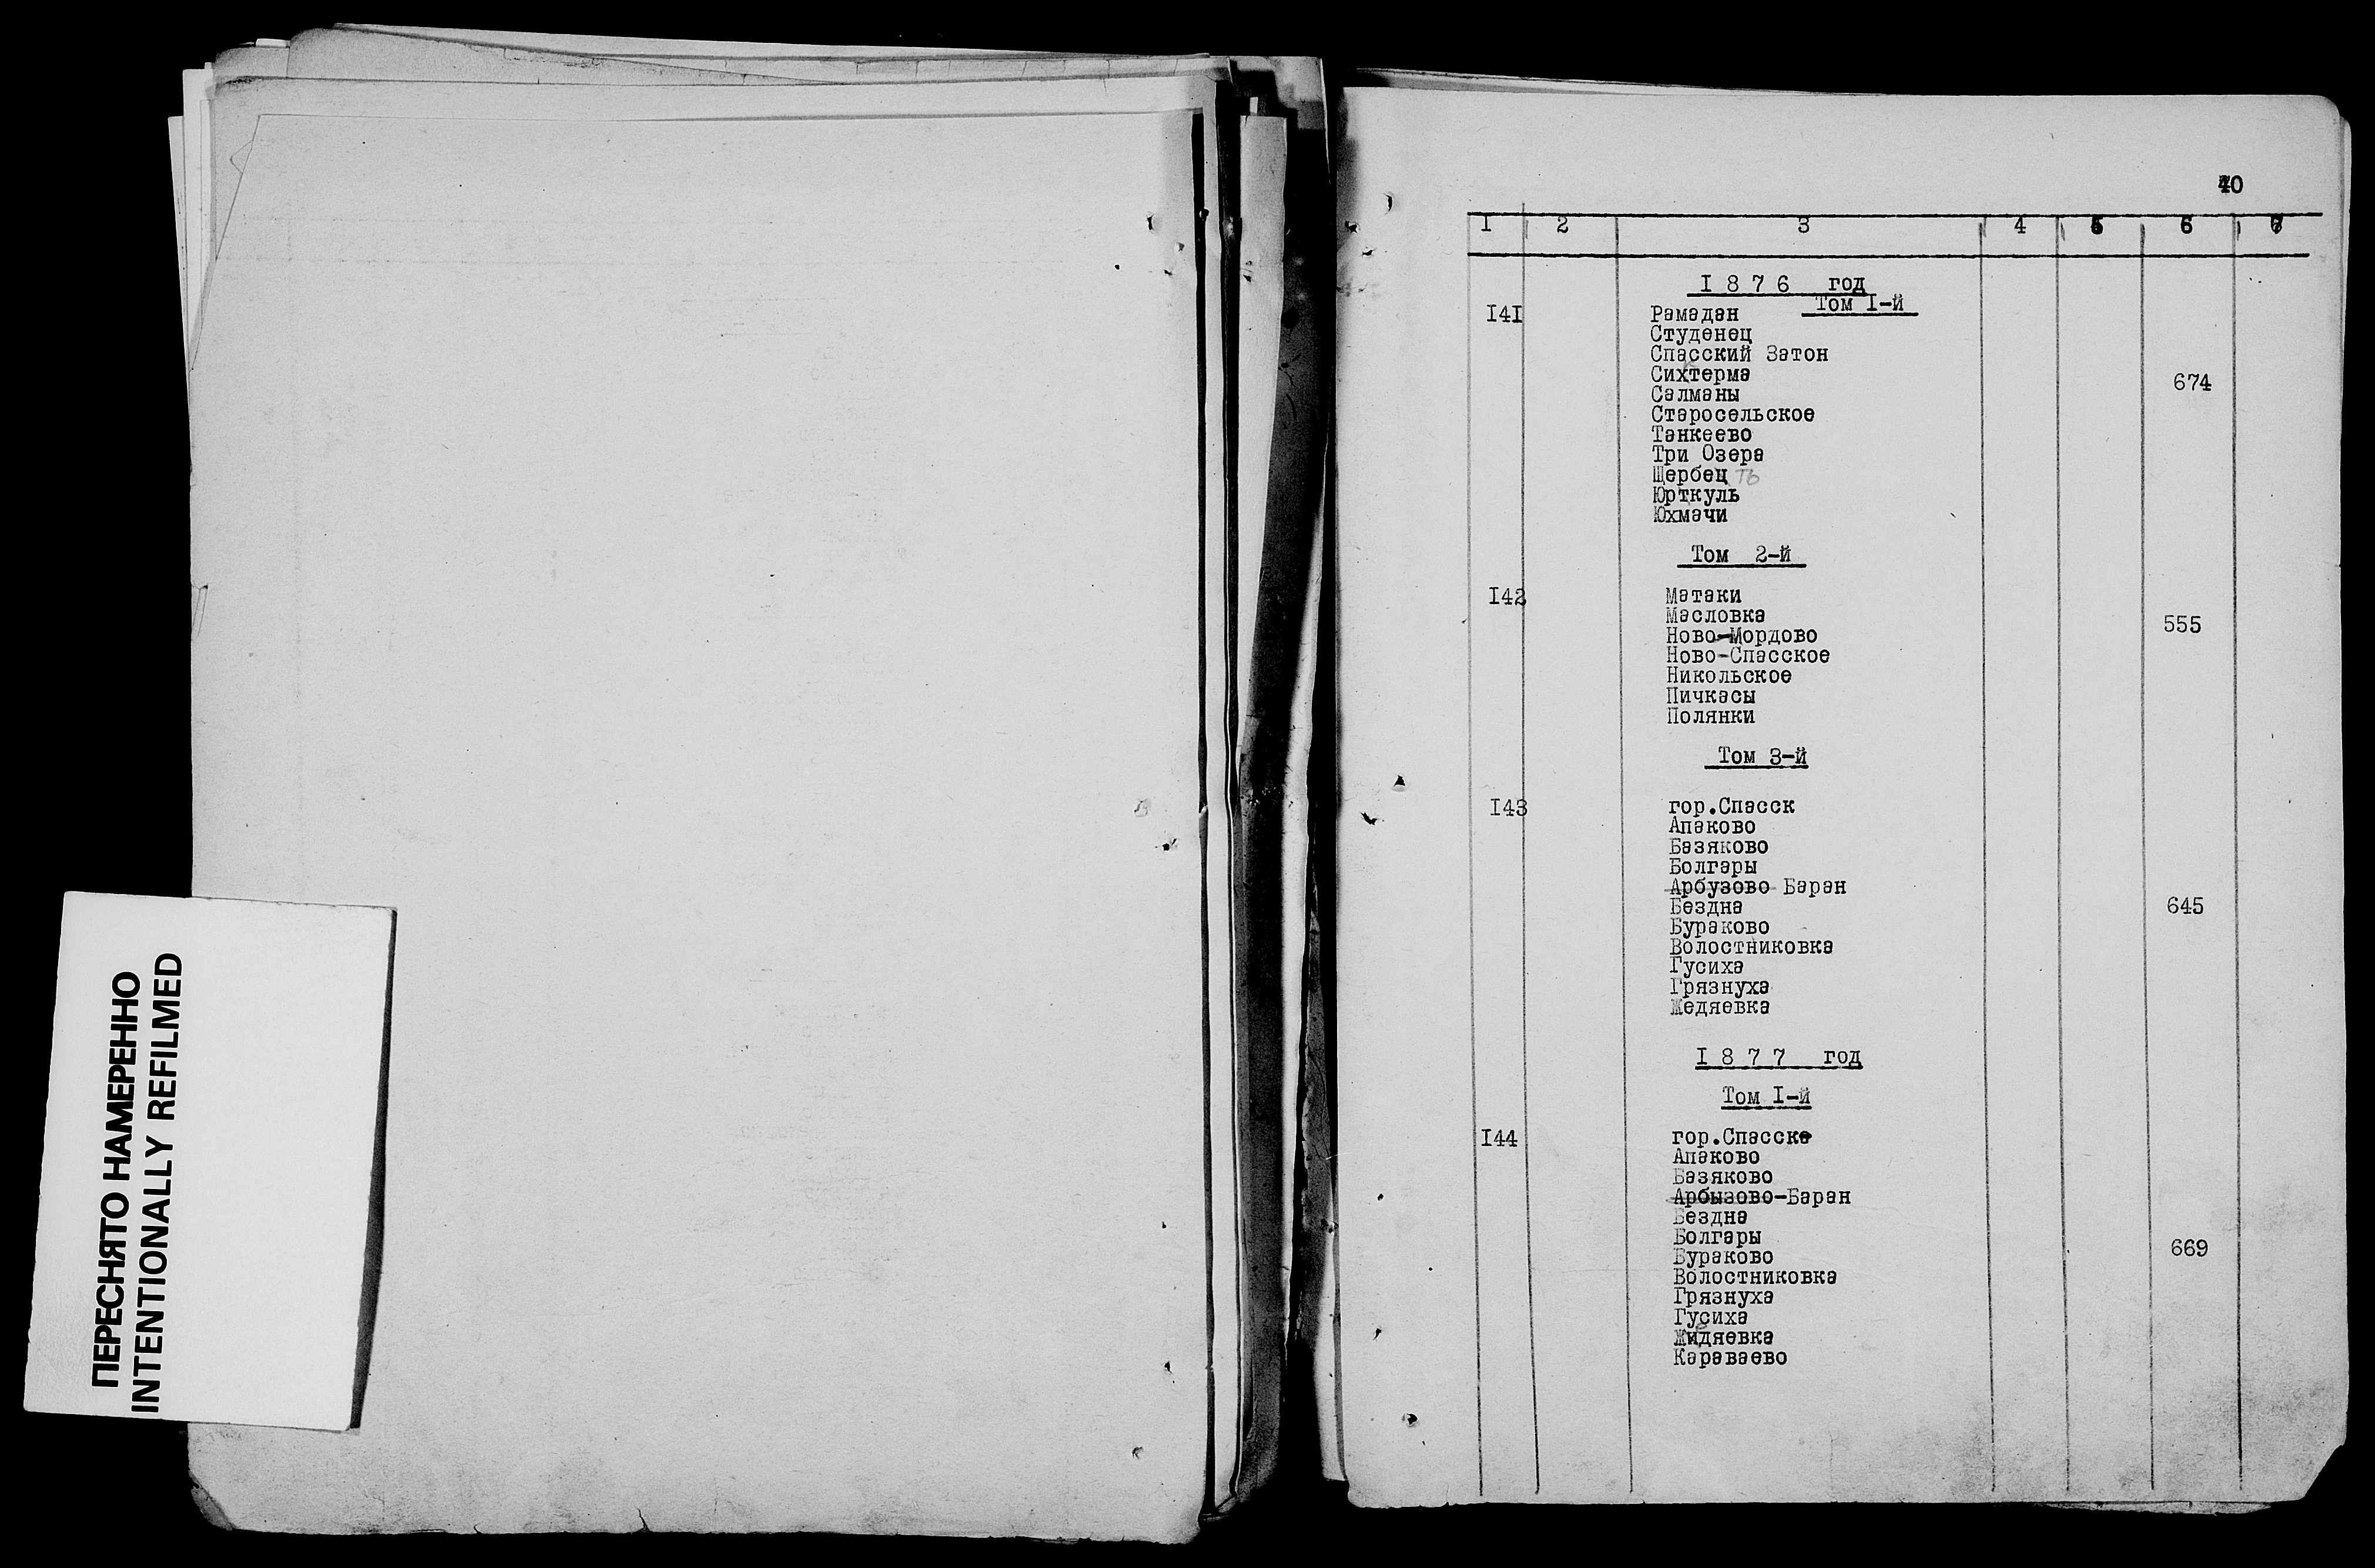 ПЕРЕСНЯТО НАМЕРЕННО
INTENTIONALLY REFILMED
40
1 2 3 4 5 6 7
1876 год
Том I-й
I41 Рамадан
Студенец
Спасский Затон
Сихтерма
674
Салманы
Старосельское
Танкеево
Три Озера
Щербеть
Юрткуль
Юхмачи
Том 2-й
I42 Матаки
Масловка
555
Ново-Мордово
Ново-Спасское
Никольское
Пичкасы
Полянки
Том 3-й
I43 гор.Спасск
Апаково
Базяково
Болгары
Арбузово Баран
Бездна 645
Бураково
Волостниковка
Гусиха
Грязнуха
Жедяевка
I877 год
Том I-й
I44 гор.Спасск
Апаково
Базяково
Арбызово-Баран
Бездна
Болгары
669
Бураково
Волостниковка
Грязнуха
Гусиха
Жидяевка
Караваево